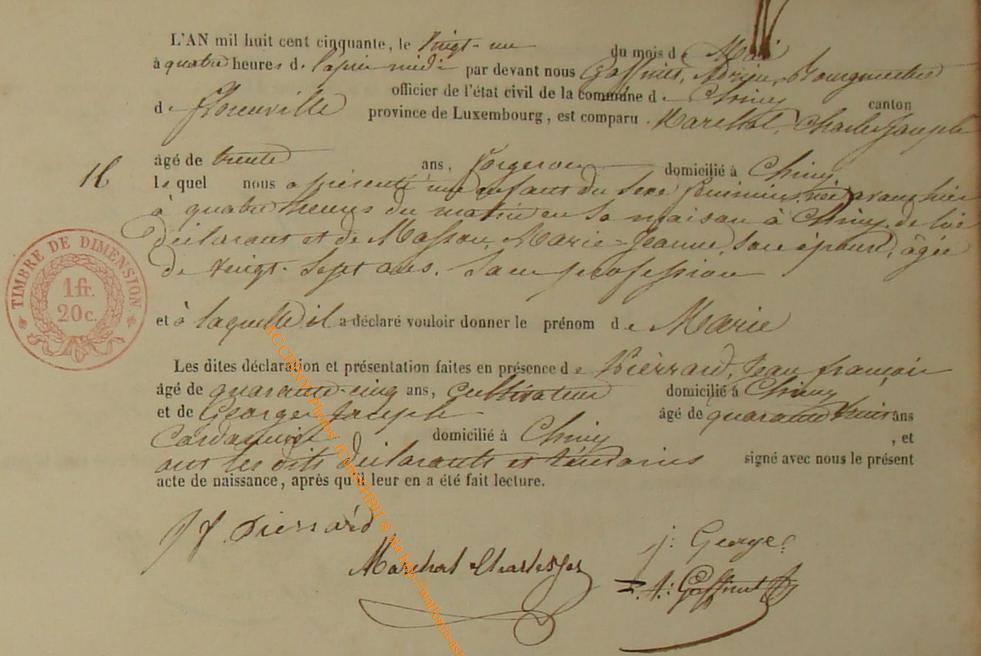 L'AN mil huit cent cinquante, le vingt-un du mois de Mai
à quatre heures de l'après midi par devant nous Adrien, Bourgmestre
officier de l'état civil de la commune de Chiny canton
de Florenville province de Luxembourg, est comparu Maréchal, Charles Joseph
16 âgé de trente ans, forgeron domicilié à Chiny
lequel nous a présenté un enfant du sexe féminin, née avant hier
à quatre heures du matin en sa maison à Chiny, de lui
déclarant et de Masson, Marie-Jeanne son épouse, âgée
de vingt-sept ans. Sans profession
TIMBRE DE DIMENSION
1 fr.
20 c.
et à laquelle il a déclaré vouloir donner le prénom de Marie
Les dites déclaration et présentation faites en présence de Pierrard, Jean françois
âgé de quarante-cinq ans, cultivateur domicilié à Chiny
et de George Joseph âgé de quarante ans
domicilié à Chiny , et
ont les dits déclarants et témoins signé avec nous le présent
acte de naissance, après qu'il leur en a été fait lecture.
Jf. Pierrard
Marchal Charles Jos
j: George